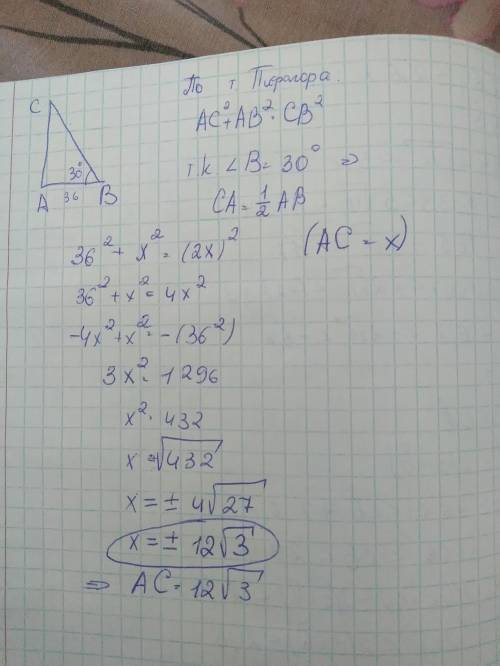 По т. Пифагора.
C
AC²+AB²=CB²
т.к ∠B=30° =>
30°
A
36
B
CA=½AB
36²+x²=(2x)²
(AC=x)
36²+x²=4x²
-4x²+x²=-(36²)
3x²=1296
x²=432
x=√432
x=±4√27
x=±12√3
=> AC=12√3